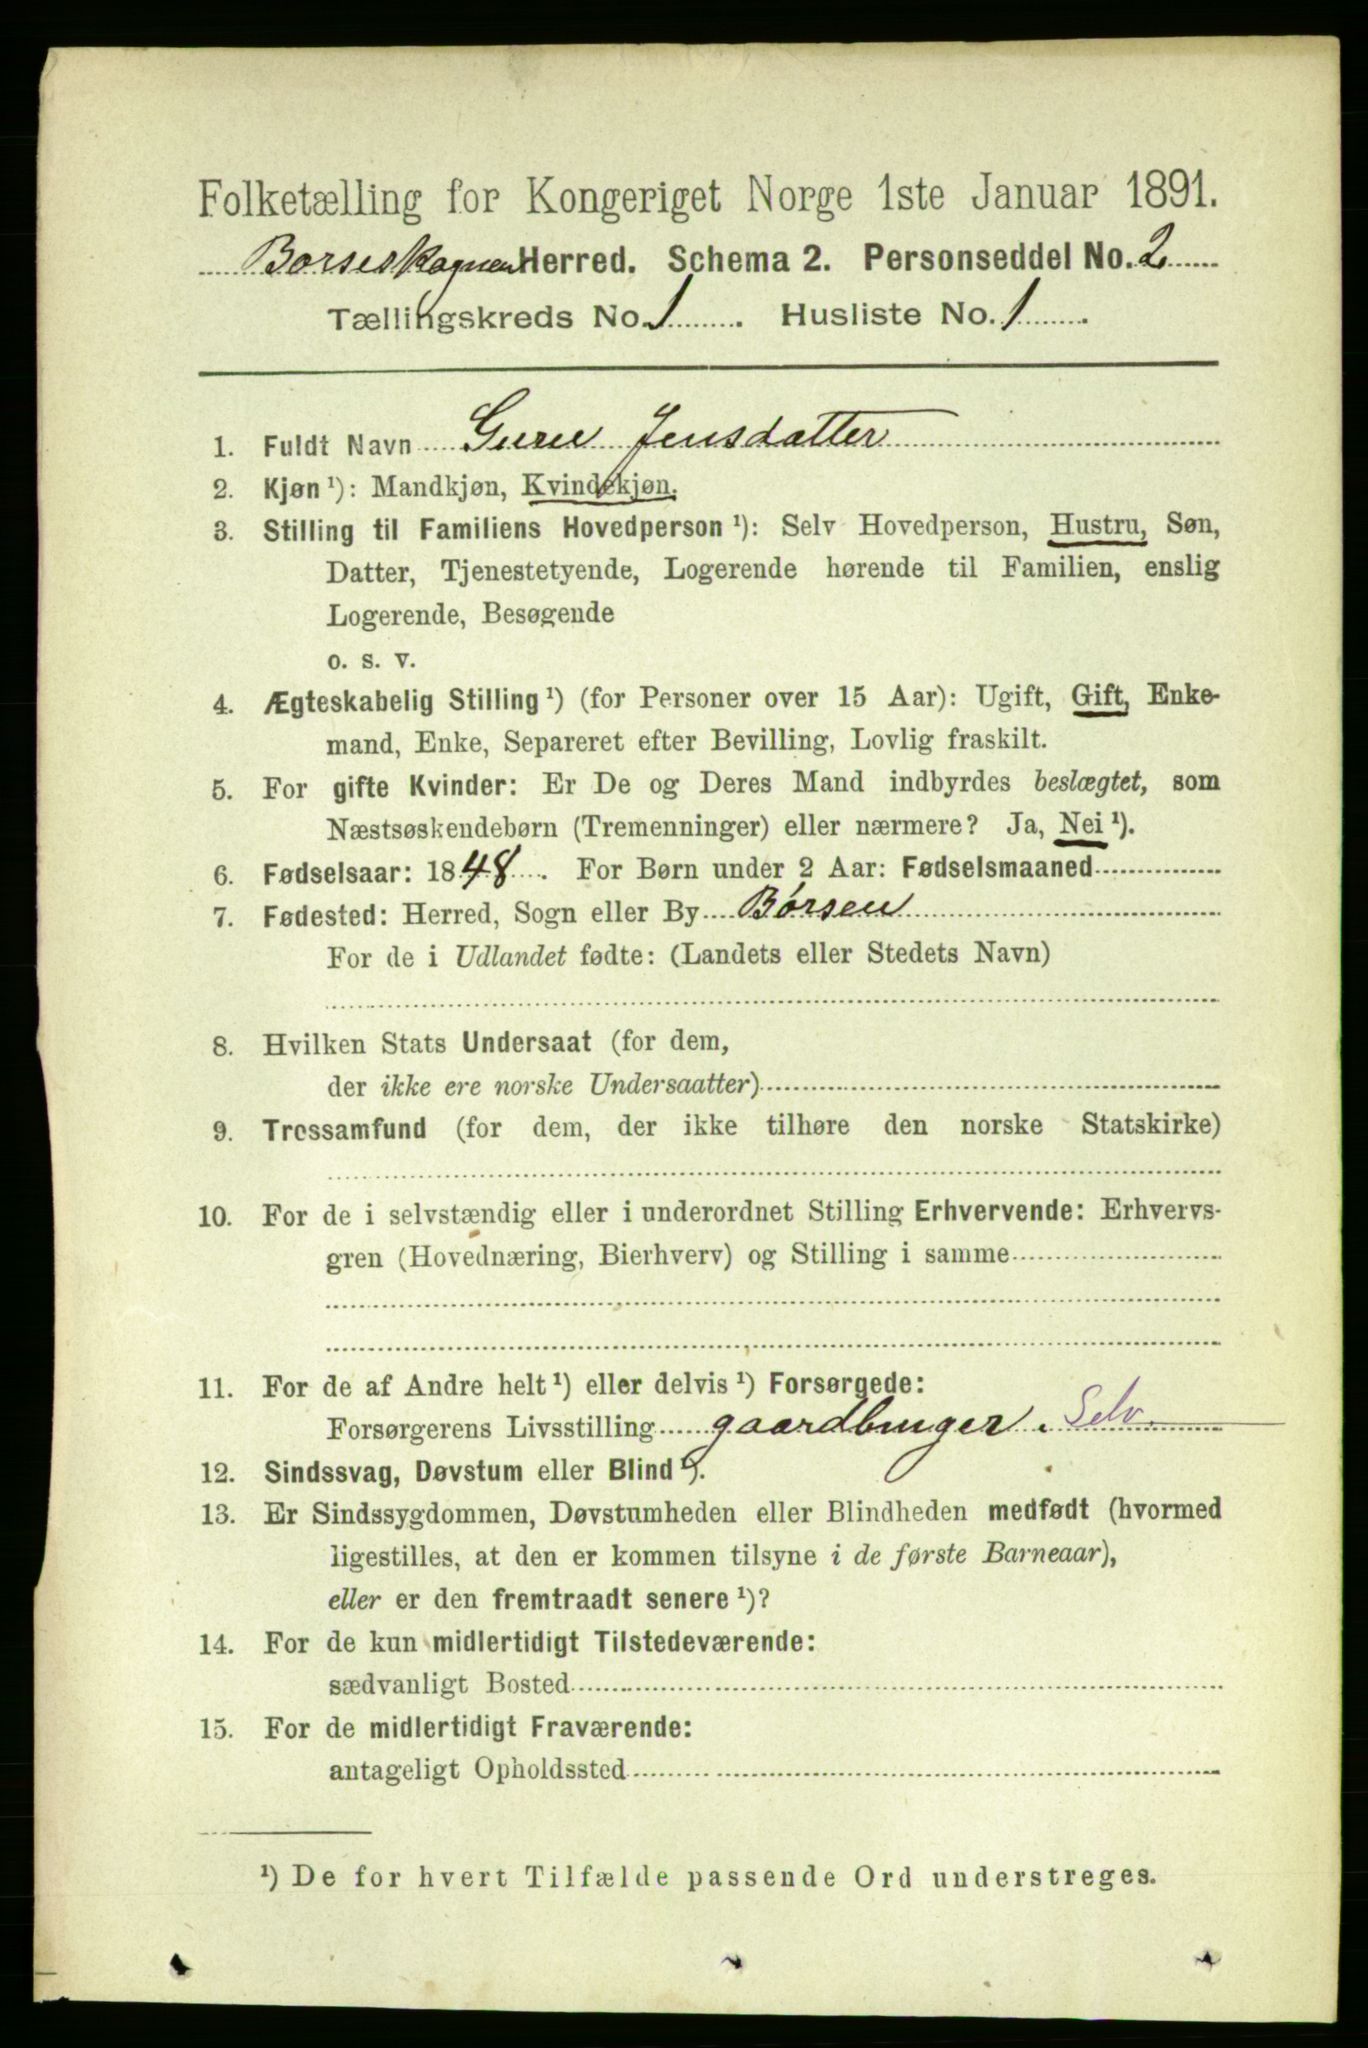 Folketælling for Kongeriget Norge 1ste Januar 1891.
Børseskognen Herred. Schema 2. Personseddel No. 2
Tællingskreds No. 1. Husliste No. 1
1. Fuldt Navn Gure Jensdatter
2. Kjøn ¹): Mandkjøn, Kvindekjøn.
3. Stilling til Familiens Hovedperson ¹): Selv Hovedperson, Hustru, Søn,
Datter, Tjenestetyende, Logerende hørende til Familien, enslig
Logerende, Besøgende
o. s. v.
4. Ægteskabelig Stilling ¹) (for Personer over 15 Aar): Ugift, Gift, Enke-
mand, Enke, Separeret efter Bevilling, Lovlig fraskilt.
5. For gifte Kvinder: Er De og Deres Mand indbyrdes beslægtet, som
Næstsøskendebørn (Tremenninger) eller nærmere? Ja, Nei ¹).
6. Fødselsaar: 1848. For Børn under 2 Aar: Fødselsmaaned
7. Fødested: Herred, Sogn eller By Børsen
For de i Udlandet fødte: (Landets eller Stedets Navn)
8. Hvilken Stats Undersaat (for dem,
der ikke ere norske Undersaatter)
9. Trossamfund (for dem, der ikke tilhøre den norske Statskirke)
10. For de i selvstændig eller i underordnet Stilling Erhvervende: Erhvervs-
gren (Hovednæring, Bierhverv) og Stilling i samme
11. For de af Andre helt ¹) eller delvis ¹) Forsørgede:
Forsørgerens Livsstilling gaardbruger. Selv.
12. Sindssvag, Døvstum eller Blind ¹).
13. Er Sindssygdommen, Døvstumheden eller Blindheden medfødt (hvormed
ligestilles, at den er kommen tilsyne i de første Barneaar),
eller er den fremtraadt senere ¹)?
14. For de kun midlertidigt Tilstedeværende:
sædvanligt Bosted
15. For de midlertidigt Fraværende:
antageligt Opholdssted
¹) De for hvert Tilfælde passende Ord understreges.